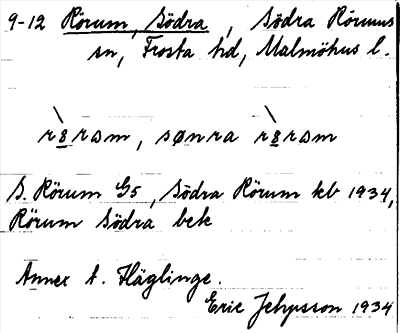 9-12 Rörum, Södra, Södra Rörums
sn, Frosta hd, Malmöhus l.
rȣrɷm, sønra rȣrɷm
S. Rörum G5, Södra Rörum kb 1934,
Rörum Södra bek
Annex t. Häglinge.
Eric Jehpsson 1934